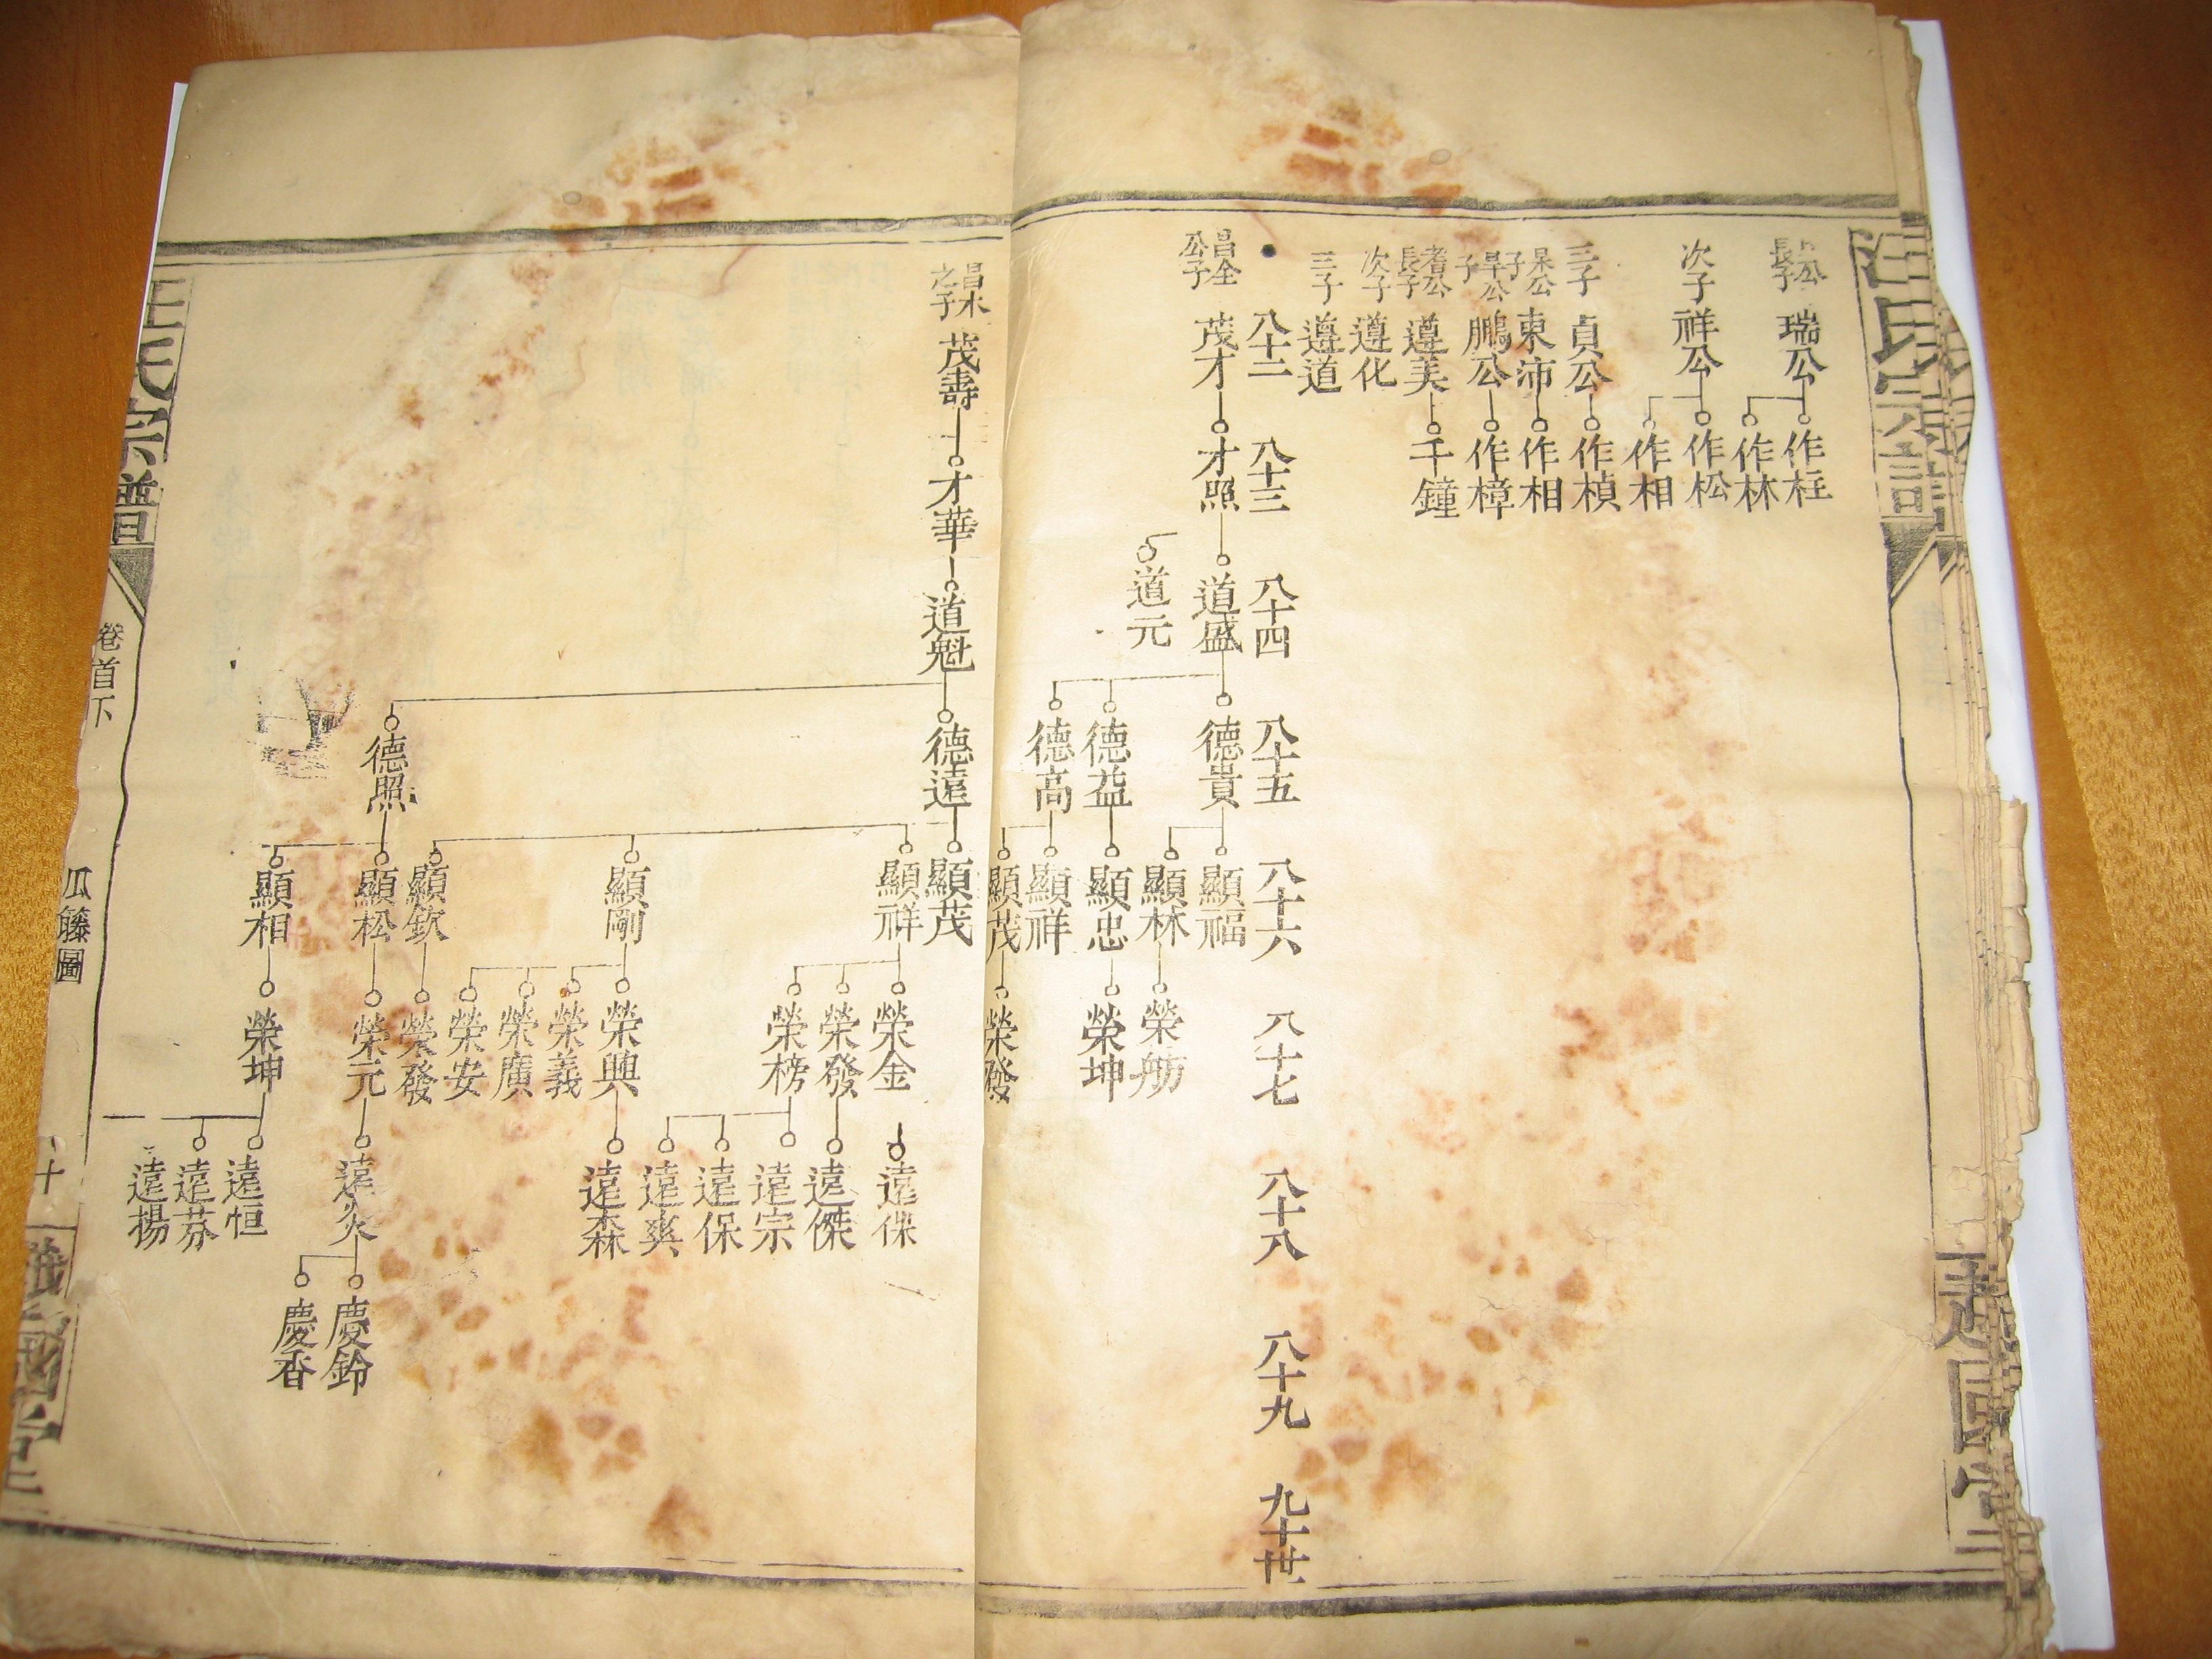 汪氏宗譜
越國堂
長子
瑞公
作枉
作林
次子
祥公
作松
作相
三子
貞公
作楨
杲公子
東沛
作相
旱公子
鵬公
作樟
耆公長子
遵美
千鐘
次子
遵化
三子
遵道
八十二
八十三
八十四
八十五
八十六
八十七
八十八
八十九
九十世
昌全公子
茂才
才照
道盛
道元
德貴
德益
德高
顯福
顯林
顯忠
顯祥
顯茂
榮舫
榮坤
榮發
昌木之子
茂壽
才華
道魁
德遠
德照
顯茂
顯祥
顯剛
顯欽
顯松
顯相
榮金
榮發
榮榜
榮興
榮義
榮廣
榮安
榮發
榮元
榮坤
遠保
遠傑
遠宗
遠保
遠爽
遠森
遠炎
遠恒
遠芬
遠楊
慶鈴
慶香
汪氏宗譜
卷首下
瓜籐圖